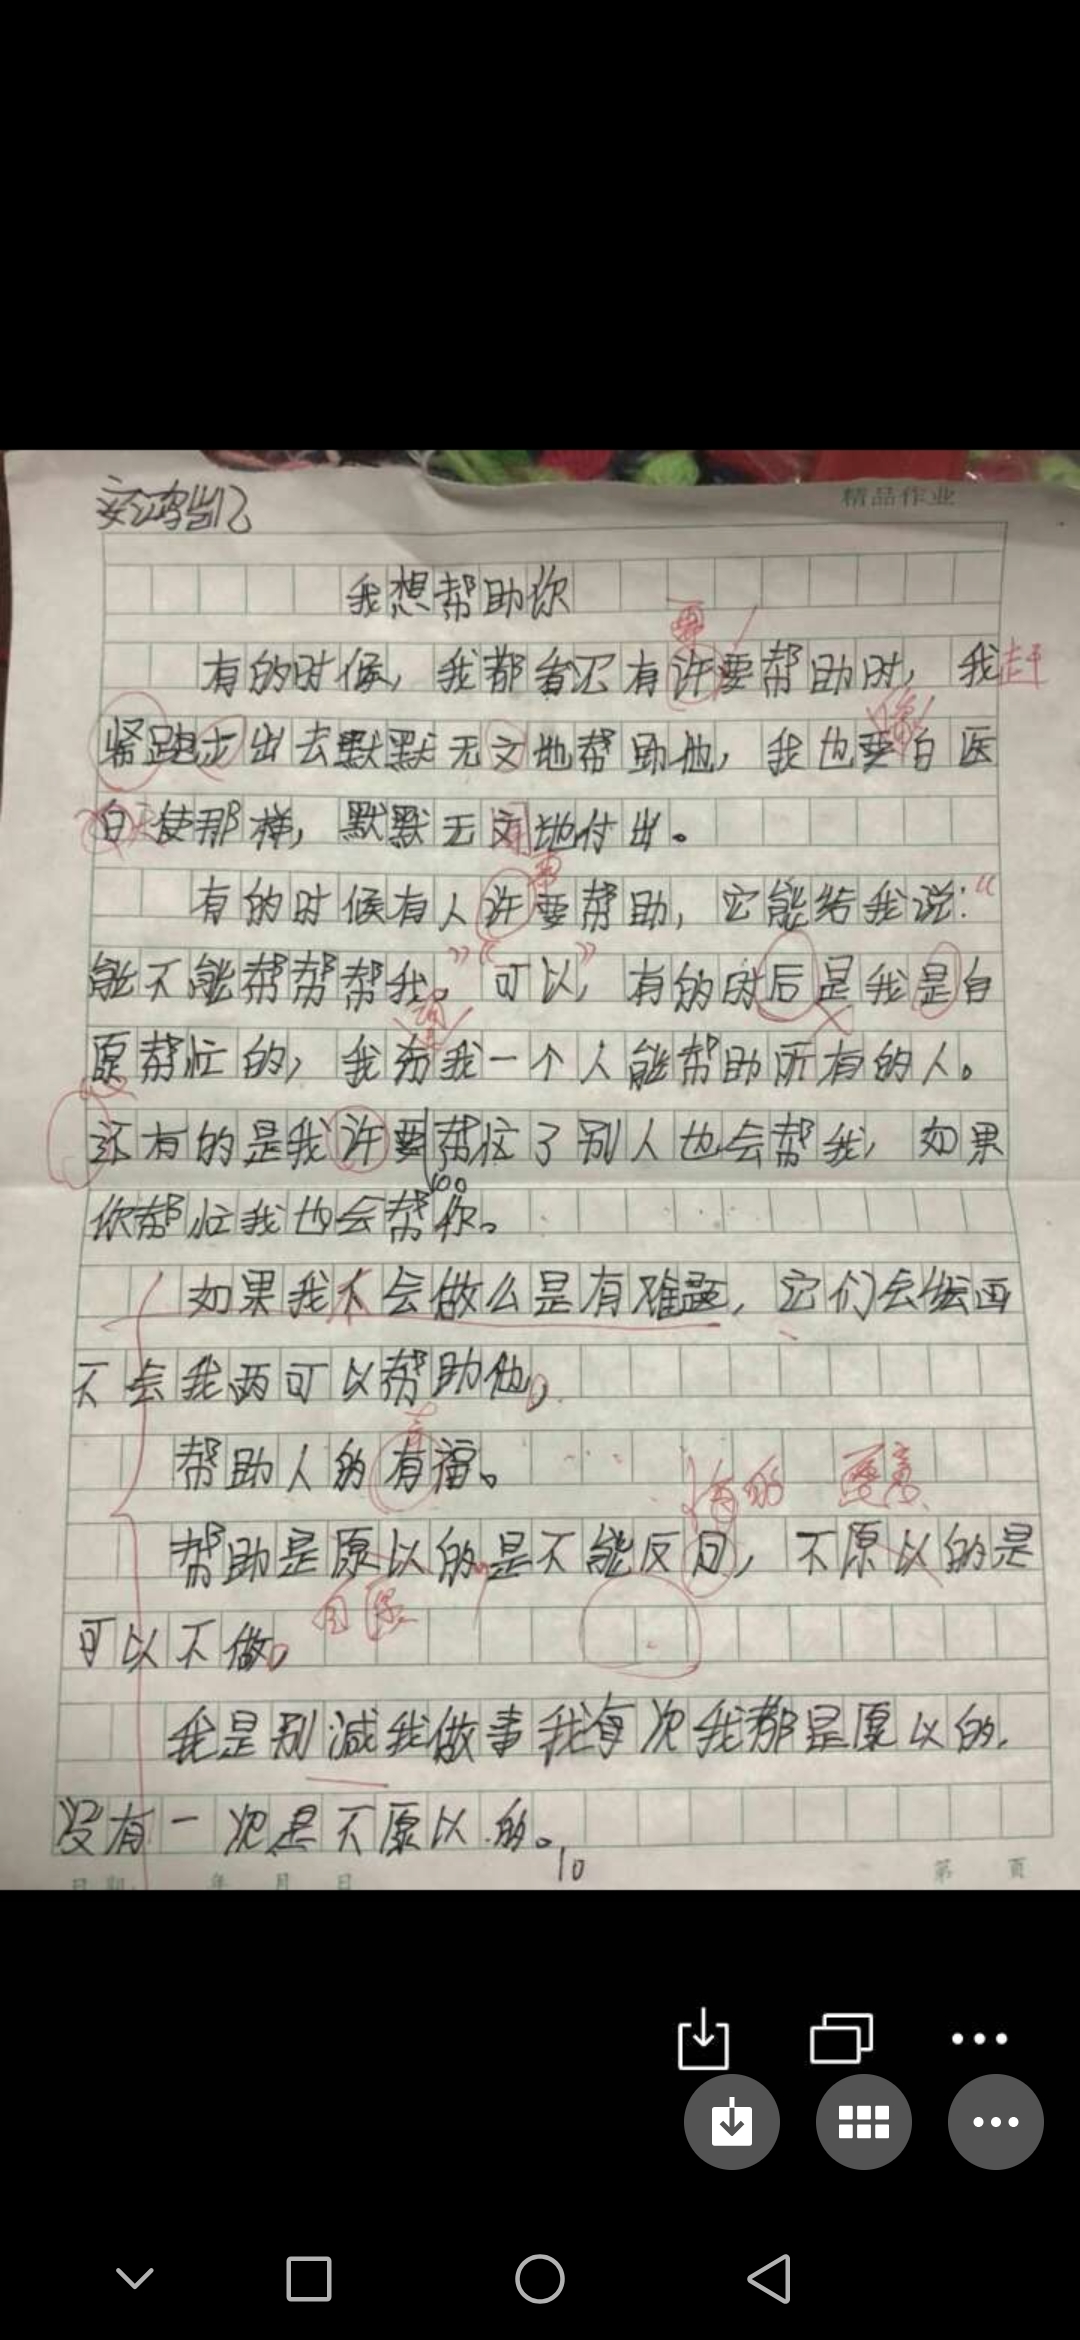 精品作业
我想帮助你
需
有的时候，我都看不有许要帮助时，我赶
紧跑步出去默默无文地帮助他，我也要白医
像
白天使那样，默默无文地付出。
闻
需
有的时候有人许要帮助，它能给我说：“
能不能帮帮帮我。”“可以”，有的时后是我是自
原帮忙的，我为我一个人能帮助所有的人。
还有的是我许要帮忙了别人也会帮我，如果
100
你帮忙我也会帮你。
如果我不会做么是有难题，它们会绘画
不会我两可以帮助他。
帮助人的有福。
悔的
愿意
帮助是原以的是不能反回，不原以的是
可以不做。
自愿
我是别减我做事我每次我都是原以的.
没有一次是不原以的。
10
日期： 年 月 日
第 页